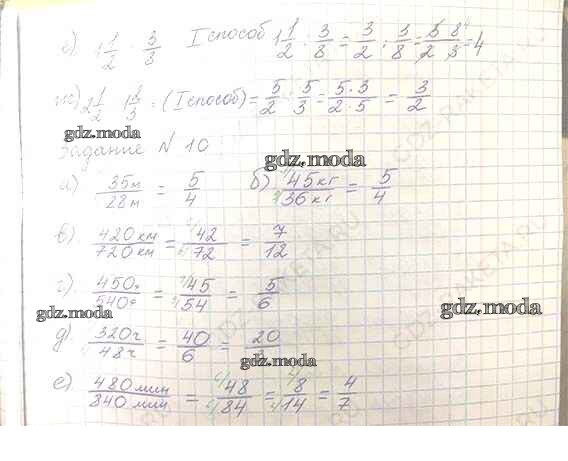 е) 1 1/2 : 3/8 I способ 1 1/2 : 3/8 = 3/2 : 3/8 = 3 8/2 3 = 4
ж) 2 1/2 1 2/3 = (I способ) = 5/2 : 5/3 = 5·3/2·5 = 3/2
gdz.moda
Задание N 10
gdz.moda
а) 35м/28м = 5/4 б) 45 кг/36 кг = 5/4
в). 420 км/720 км = 42/72 = 7/12
г). 450г/540г = 45/54 = 5/6
gdz.moda gdz.moda
д). 320г/48г = 40/6 = 20
gdz.moda
е) 480 мин/840 мин = 48/84 = 8/14 = 4/7
GDZ-RAKETA.RU